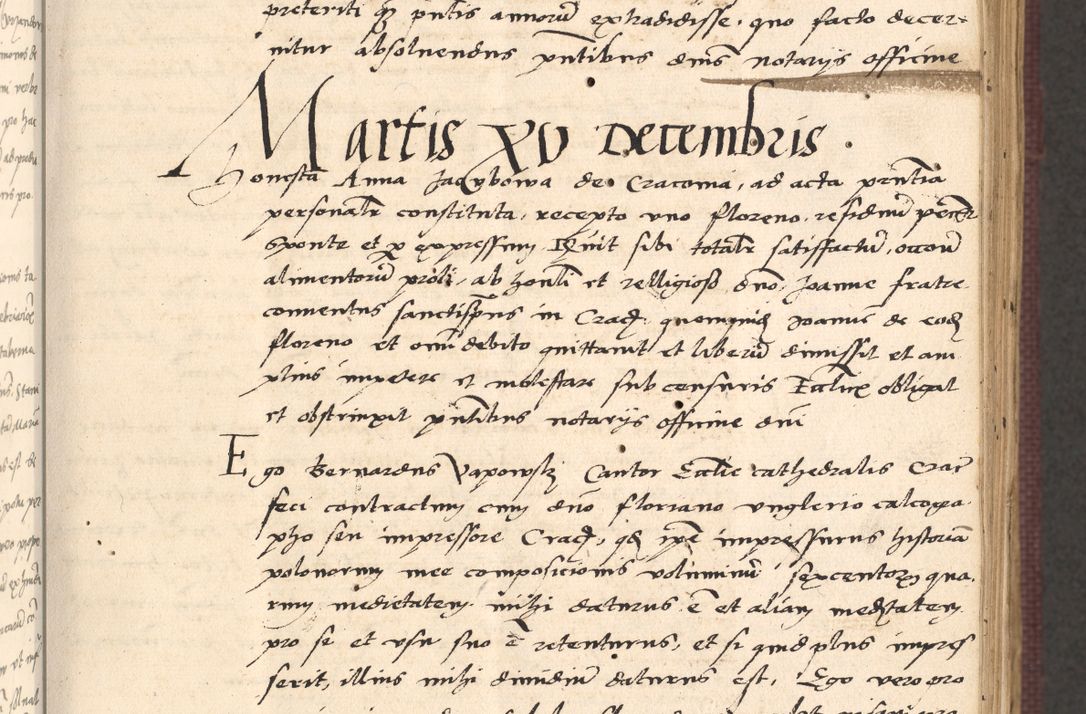 preteriti et pntis annorũ extradidisse, quo facto decer-
nitur absoluendus pntibus dnis notarijs officine
Martis XV Decembris.
Honesta Anna Jacubowa de Cracouia, ad acta prntia
personalr constituta, recepto uno floreno, residuũ
sponte et per expressum quit sibi totalr satisfactũ,
alimentorũ proli, ab honli et relligioso dno, Joanne fratre
conuentus sancti spus in Crac, Joannẽ de eod
floreno et omi debito quittauit et liberũ dimissit et am
plius impetere et molestare sub censuris Ecclice obligat
et obstrinxit pntibus notarijs officine dni
Ego Bernardus Vapowski Cantor Ecclie cathedralis Crac
feci contractum cum dno Floriano Unglerio calcogra
pho seu impressore Crac, qd ipse impressurus historiã
polonorum mee composicionis voluminũ sexcentorum qua-
rum medietatem mihi daturus ẽ et aliam medietatem
pro se et usu suo ẽ retenturus, et si quid plus impres
serit, illius mihi dimidiũ daturus est, Ego vero pro